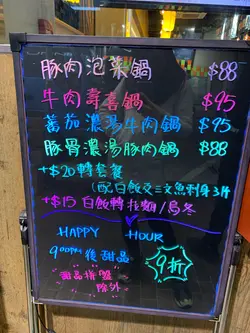 豚肉泡菜鍋 $88
牛肉壽喜鍋 $95
蕃茄濃湯牛肉鍋 $95
豚骨濃湯豚肉鍋 $88
+$20轉套餐
(配白飯及三文魚刺身3件
+$15 白飯轉拉麵/烏冬
HAPPY HOUR
9:00PM後 甜品 9折
甜品拼盤
除外